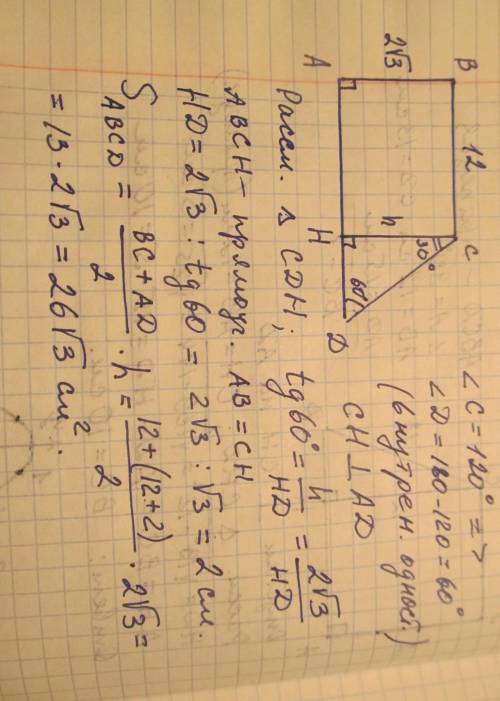 B 12 C
2√3
h
30°
60°
A H D
∠C = 120° =>
∠D = 180-120 = 60°
(внутрен. одной.)
CH ⊥ AD
Рассм. Δ CDH; tg60° = h/HD = 2√3/HD
ABCH - прямоуг. AB = CH
HD = 2√3 : tg60 = 2√3 : √3 = 2 см.
S ABCD = BC + AD/2 · h = 12+(12+2)/2 · 2√3 =
= 13 · 2√3 = 26√3 см².